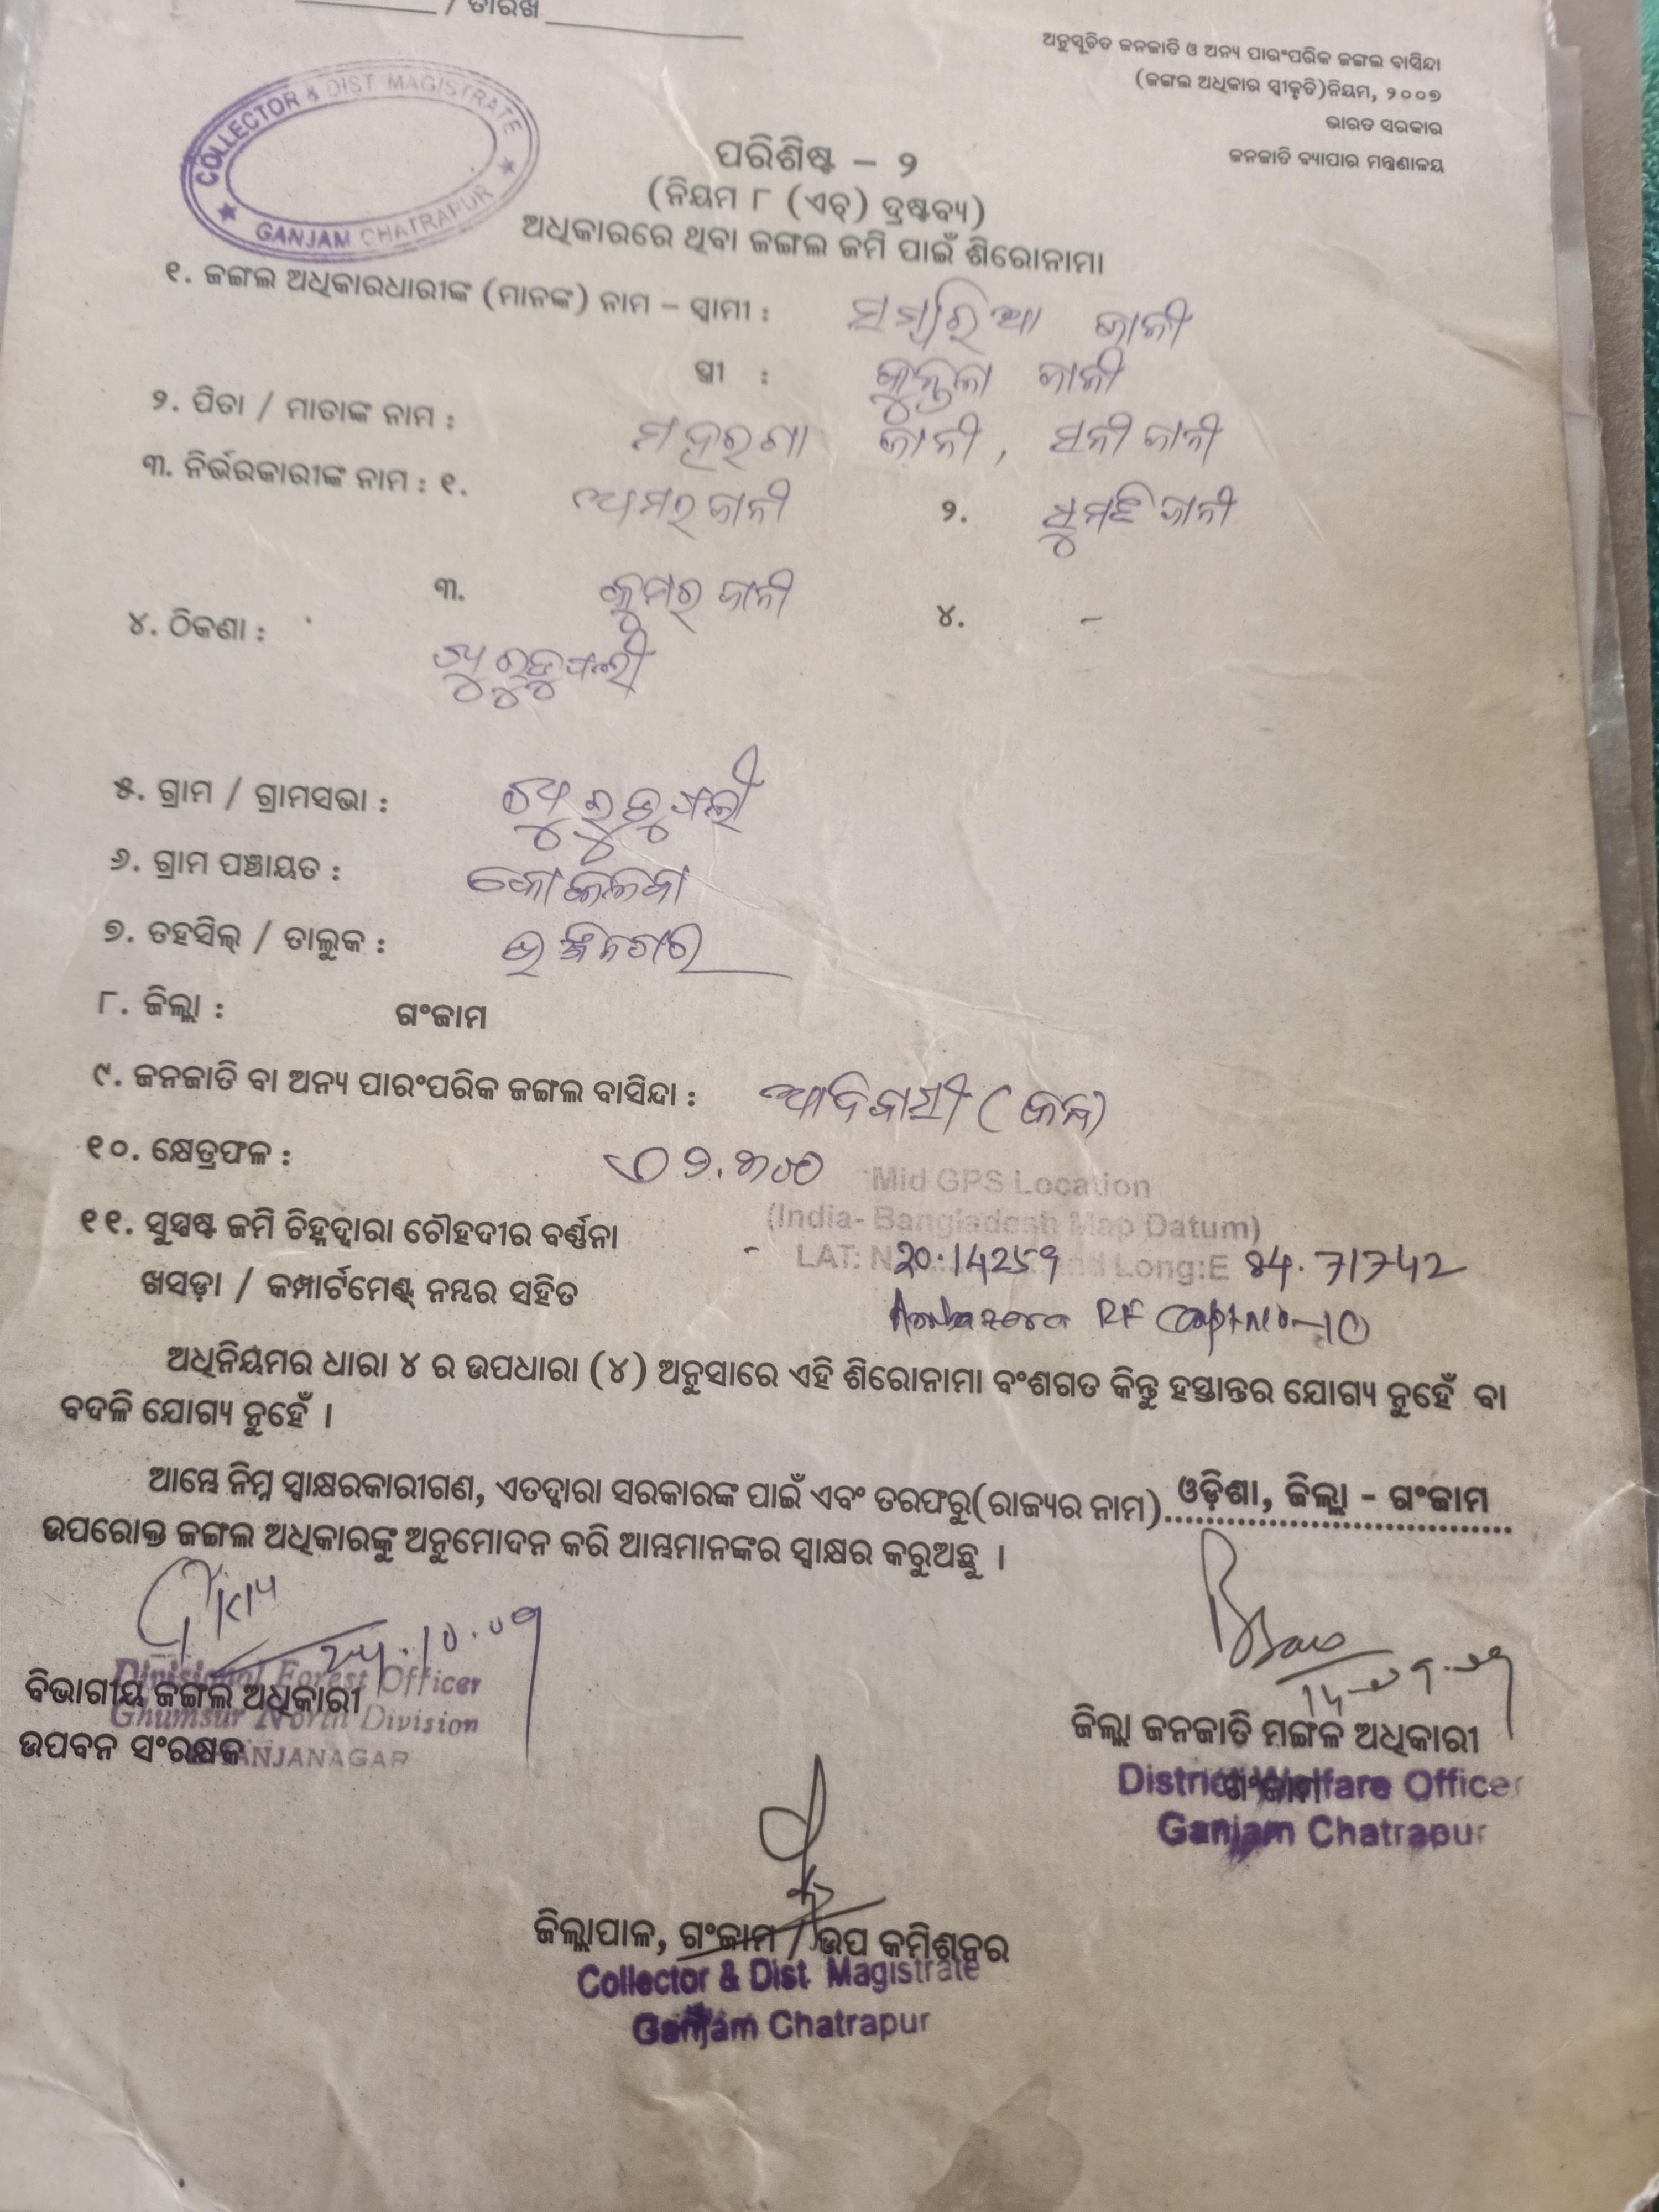 / ତାରିଖ
ଅନୁସୂଚିତ ଜନଜାତି ଓ ଅନ୍ୟ ପାରଂପରିକ ଜଙ୍ଗଲ ବାସିନ୍ଦା
(ଜଙ୍ଗଲ ଅଧିକାର ସ୍ୱୀକୃତି)ନିୟମ, ୨୦୦୭
ଭାରତ ସରକାର
ଜନଜାତି ବ୍ୟାପାର ମନ୍ତ୍ରଣାଳୟ
COLLECTOR & DIST MAGISTRATE
GANJAM CHATRAPUR
ପରିଶିଷ୍ଟ – ୨
(ନିୟମ ୮ (ଏଚ୍) ଦ୍ରଷ୍ଟବ୍ୟ)
ଅଧିକାରରେ ଥିବା ଜଙ୍ଗଲ ଜମି ପାଇଁ ଶିରୋନାମା
୧. ଜଙ୍ଗଲ ଅଧିକାରଧାରୀଙ୍କ (ମାନଙ୍କ) ନାମ – ସ୍ୱାମୀ : ଜାନୀ
ସ୍ତ୍ରୀ : କୁନ୍ତଳା ଜାନୀ
୨. ପିତା / ମାତାଙ୍କ ନାମ : ଜାନୀ, ସନୀ ଜାନୀ
୩. ନିର୍ଭରକାରୀଙ୍କ ନାମ : ୧. ଅମର ଜାନୀ ୨. ଜାନୀ
୩. କୁମର ଜାନୀ ୪. -
୪. ଠିକଣା :
୫. ଗ୍ରାମ / ଗ୍ରାମସଭା :
୬. ଗ୍ରାମ ପଞ୍ଚାୟତ :
୭. ତହସିଲ୍ / ତାଲୁକ : ଭଞ୍ଜନଗର
୮. ଜିଲ୍ଲା : ଗଂଜାମ
୯. ଜନଜାତି ବା ଅନ୍ୟ ପାରଂପରିକ ଜଙ୍ଗଲ ବାସିନ୍ଦା : ଆଦିବାସୀ (କନ୍ଧ)
୧୦. କ୍ଷେତ୍ରଫଳ :
Mid GPS Location
(India- Bangladesh Map Datum)
୧୧. ସୁସ୍ପଷ୍ଟ ଜମି ଚିହ୍ନଦ୍ୱାରା ଚୌହଦୀର ବର୍ଣ୍ଣନା - LAT: N Long:E 84. 71742
ଖସଡ଼ା / କମ୍ପାର୍ଟମେଣ୍ଟ୍ ନମ୍ବର ସହିତ RF
ଅଧିନିୟମର ଧାରା ୪ ର ଉପଧାରା (୪) ଅନୁସାରେ ଏହି ଶିରୋନାମା ବଂଶଗତ କିନ୍ତୁ ହସ୍ତାନ୍ତର ଯୋଗ୍ୟ ନୁହେଁ ବା
ବଦଳି ଯୋଗ୍ୟ ନୁହେଁ ।
ଆମ୍ଭେ ନିମ୍ନ ସ୍ୱାକ୍ଷରକାରୀଗଣ, ଏତଦ୍ୱାରା ସରକାରଙ୍କ ପାଇଁ ଏବଂ ତରଫରୁ(ରାଜ୍ୟର ନାମ) ଓଡ଼ିଶା, ଜିଲ୍ଲା - ଗଂଜାମ
ଉପରୋକ୍ତ ଜଙ୍ଗଲ ଅଧିକାରଙ୍କୁ ଅନୁମୋଦନ କରି ଆମ୍ଭମାନଙ୍କର ସ୍ୱାକ୍ଷର କରୁଅଛୁ ।
Divisional Forest Officer
ବିଭାଗୀୟ ଜଙ୍ଗଲ ଅଧିକାରୀ
Ghumsur North Division
ଉପବନ ସଂରକ୍ଷକ
ଜିଲ୍ଲା ଜନଜାତି ମଙ୍ଗଳ ଅଧିକାରୀ
ଗଂଜାମ
District Welfare Officer
Ganjam Chatrapur
ଜିଲ୍ଲାପାଳ, ଗଂଜାମ / ଉପ କମିଶନର
Collector & Dist. Magistrate
Ganjam Chatrapur